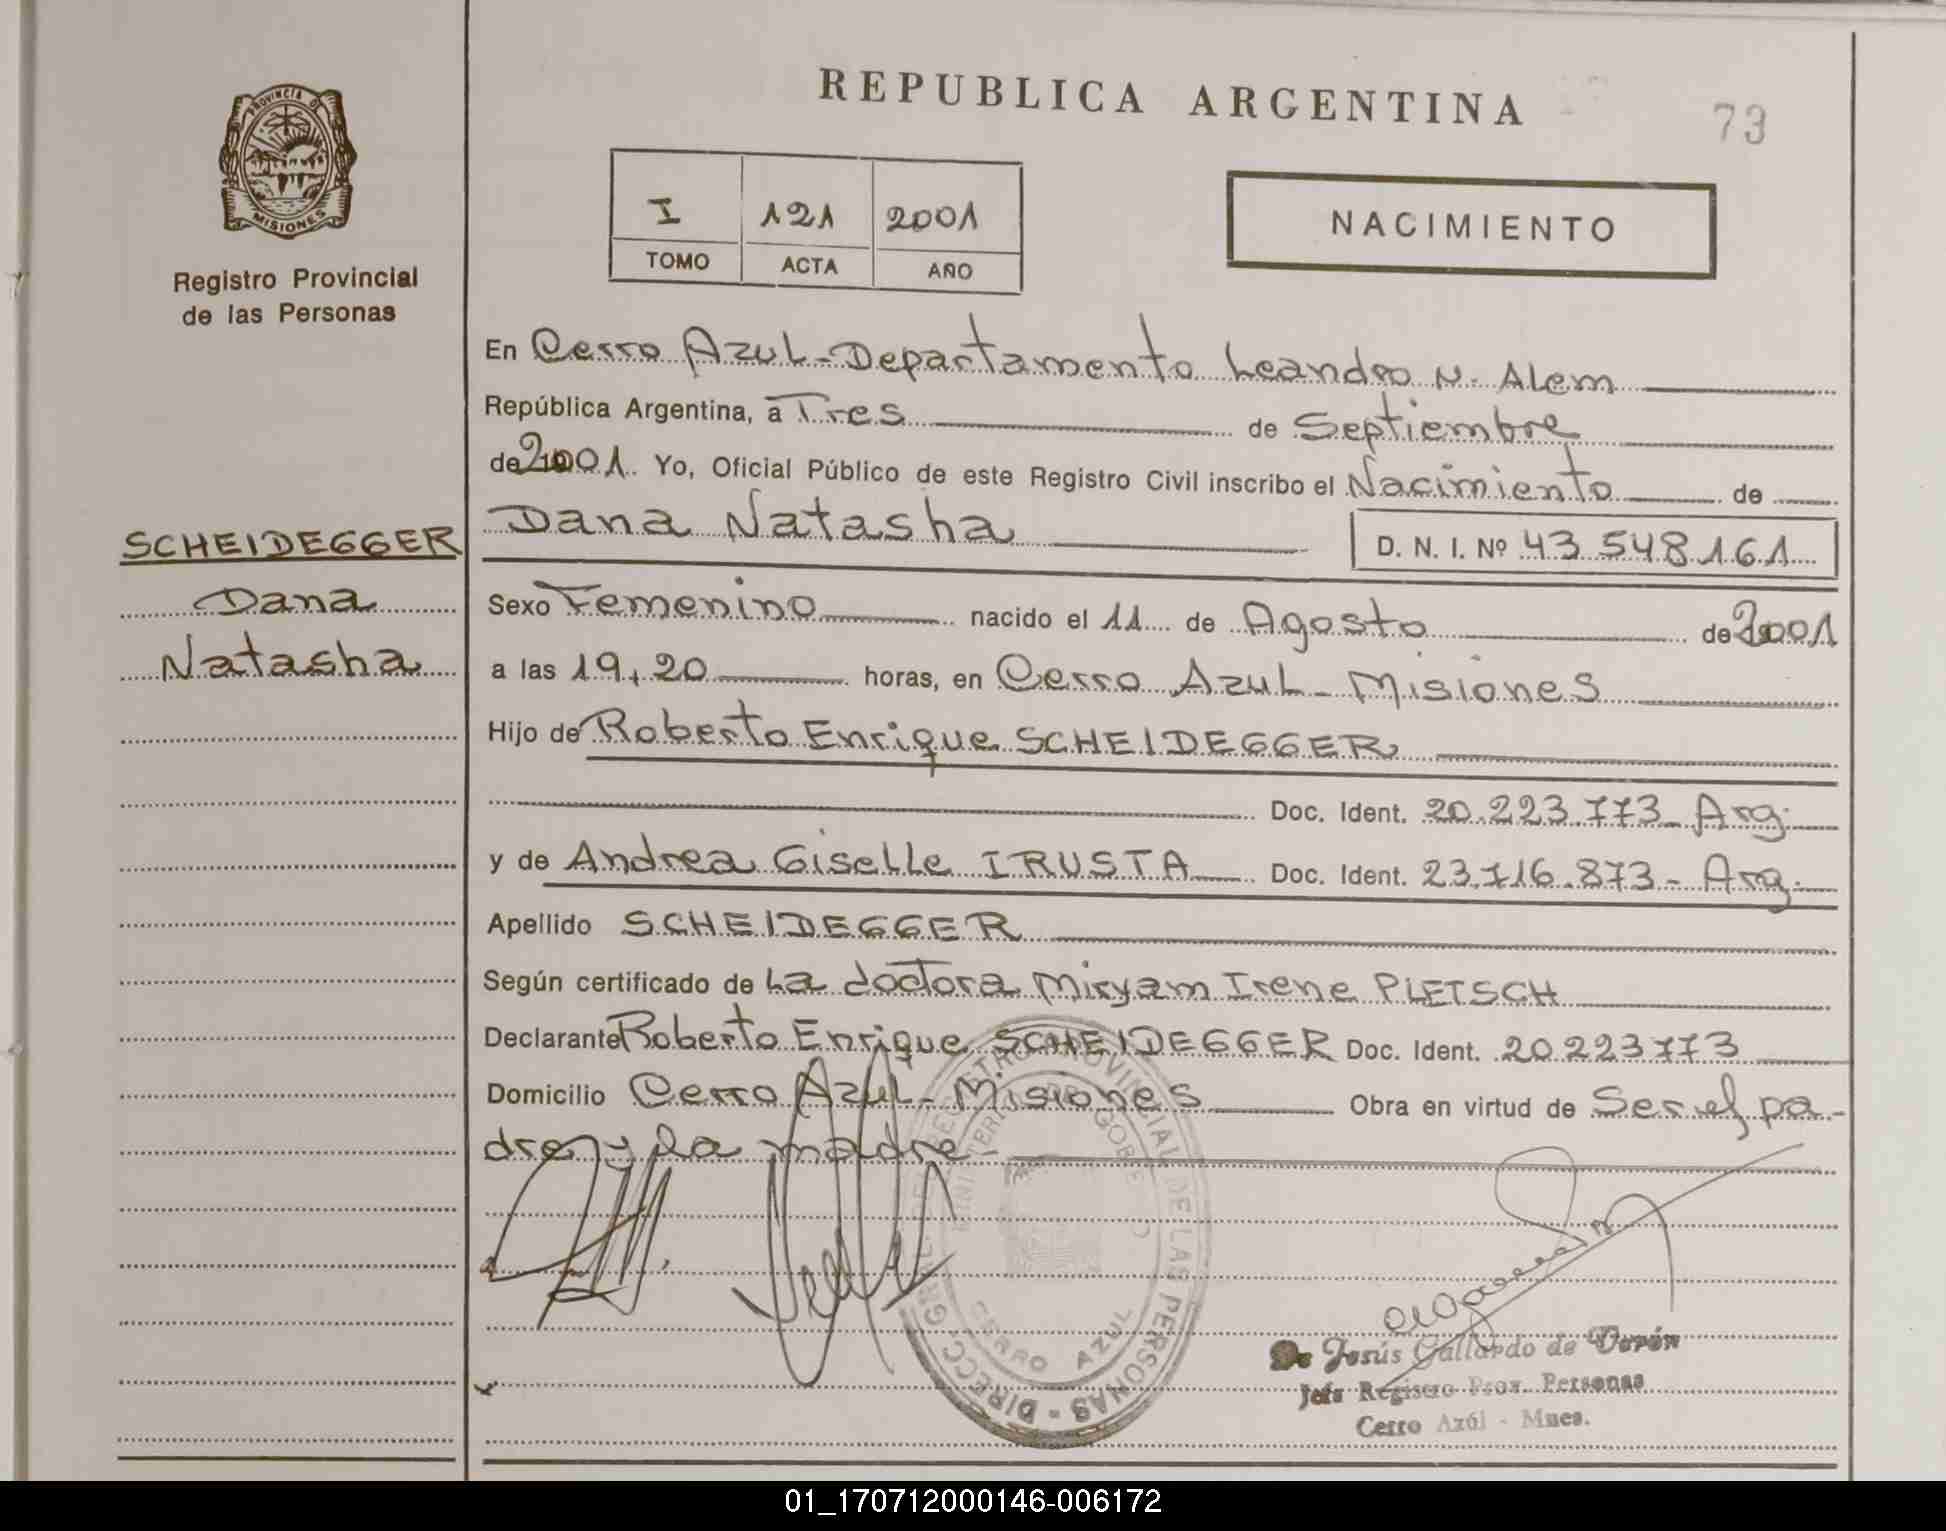 REPUBLICA ARGENTINA
73
PROVINCIA D
MISIONES
Registro Provincial
de las Personas
I 121 2001
TOMO ACTA AÑO
NACIMIENTO
En Cerro Azul - Departamento Leandro N. Alem
República Argentina, a Tres de Septiembre
de 2001. Yo, Oficial Público de este Registro Civil inscribo el Nacimiento de
Dana Natasha D. N. I. Nº 43 548 161
SCHEIDEGGER
Dana
Natasha
Sexo Femenino nacido el 11 de Agosto de 2001
a las 19,20 horas, en Cerro Azul - Misiones
Hijo de Roberto Enrique SCHEIDEGGER
Doc. Ident. 20.223.773 - Arg.
y de Andrea Giselle IRUSTA Doc. Ident. 23.716.873 - Arg.
Apellido SCHEIDEGGER
Según certificado de La doctora Miryam Irene PLETSCH
Declarante Roberto Enrique SCHEIDEGGER Doc. Ident. 20 223 773
Domicilio Cerro Azul - Misiones Obra en virtud de Ser el pa-
dre y la madre
PROVINCIAL DE LAS PERSONAS - DIRECC. GRAL. DEL REGISTRO
CERRO AZUL
De Jesús Gallardo de Durón
Jefa Registro Prov. Personas
Cerro Azúl - Mnes.
01_170712000146-006172